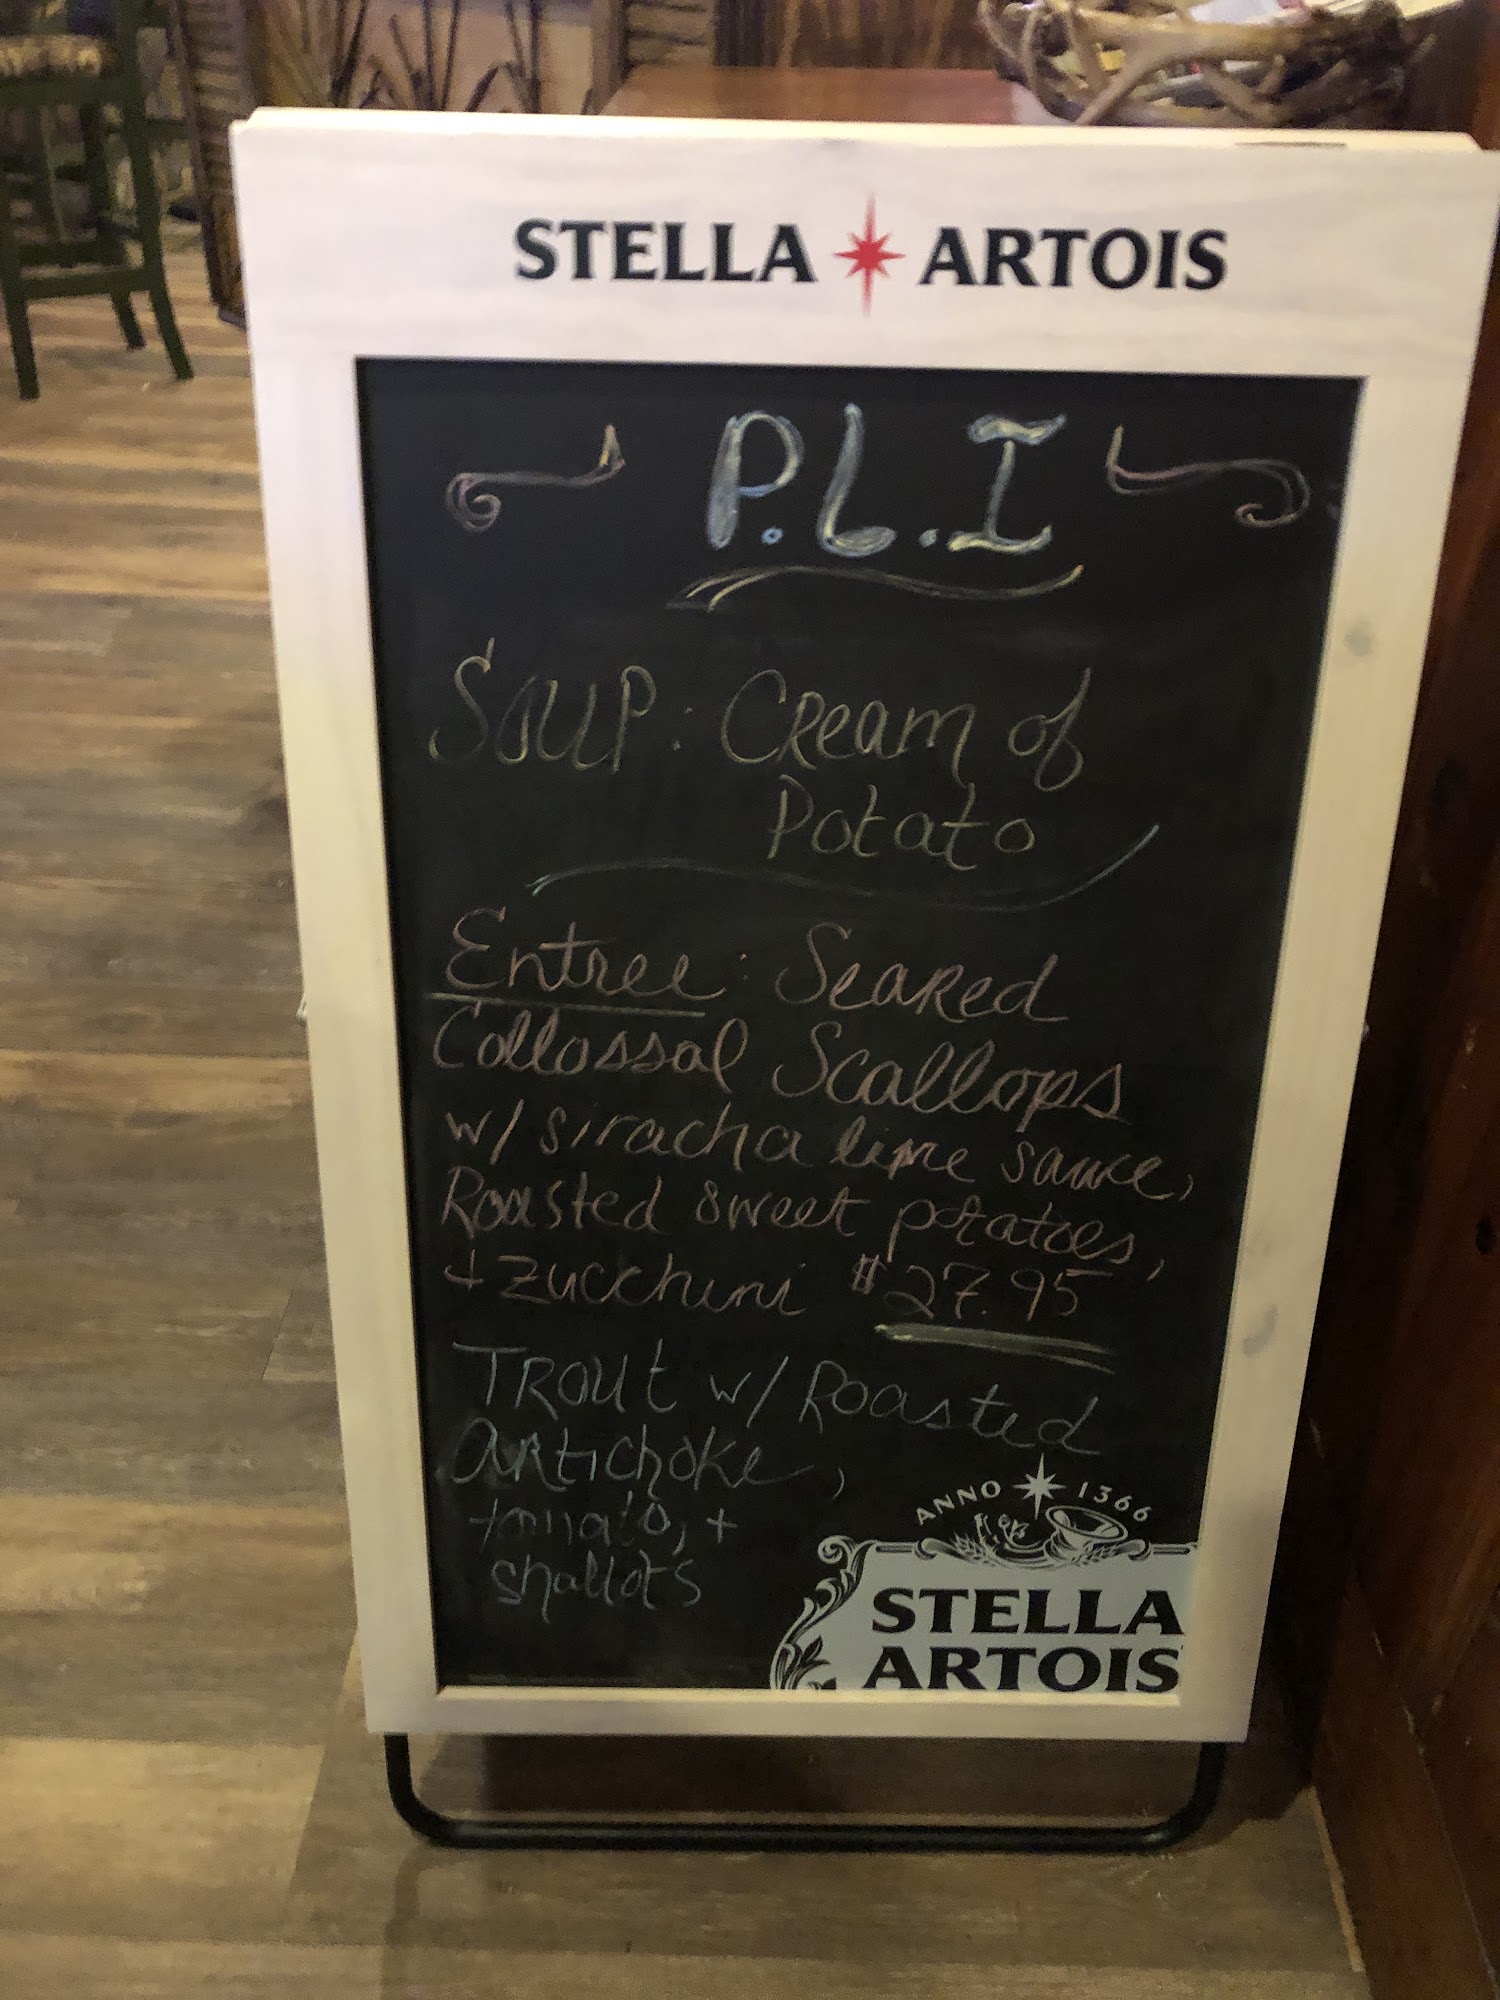 STELLA ARTOIS
P.L.I
SOUP: CReam of
Potato
Entree: SeaRed
Collossal Scallops
w/ siracha lime sauce,
Roasted sweet potatoes,
+ zucchini $27.95
TROUt w/ Roasted
aRtichoke,
tomato, +
shallots
ANNO 1366
STELLA
ARTOIS